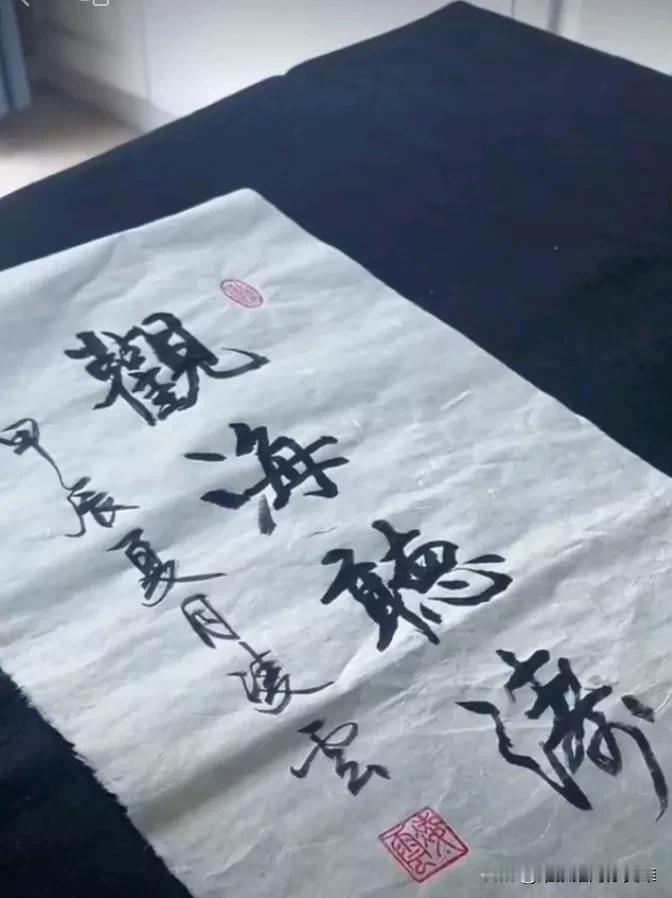 觀海聽濤
甲辰夏月凌雲